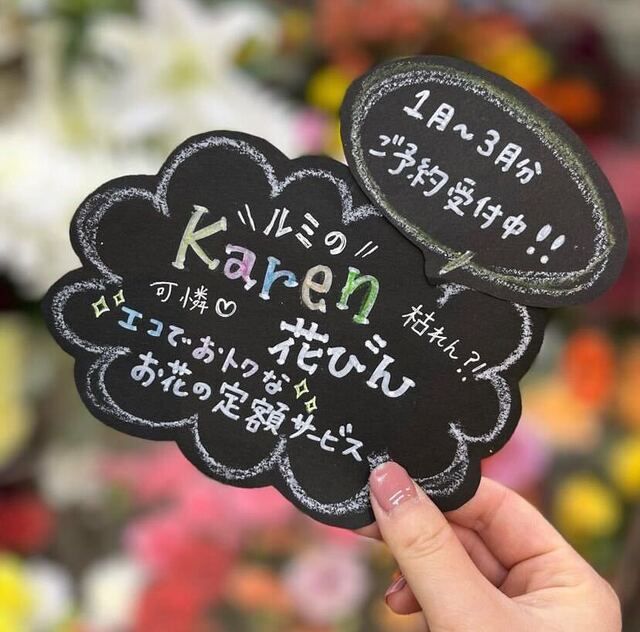 1月～3月分
ご予約受付中!!
\\ルミの//
Karen
可憐♡
枯れん?!
花びん
エコでおトクな
お花の定額サービス